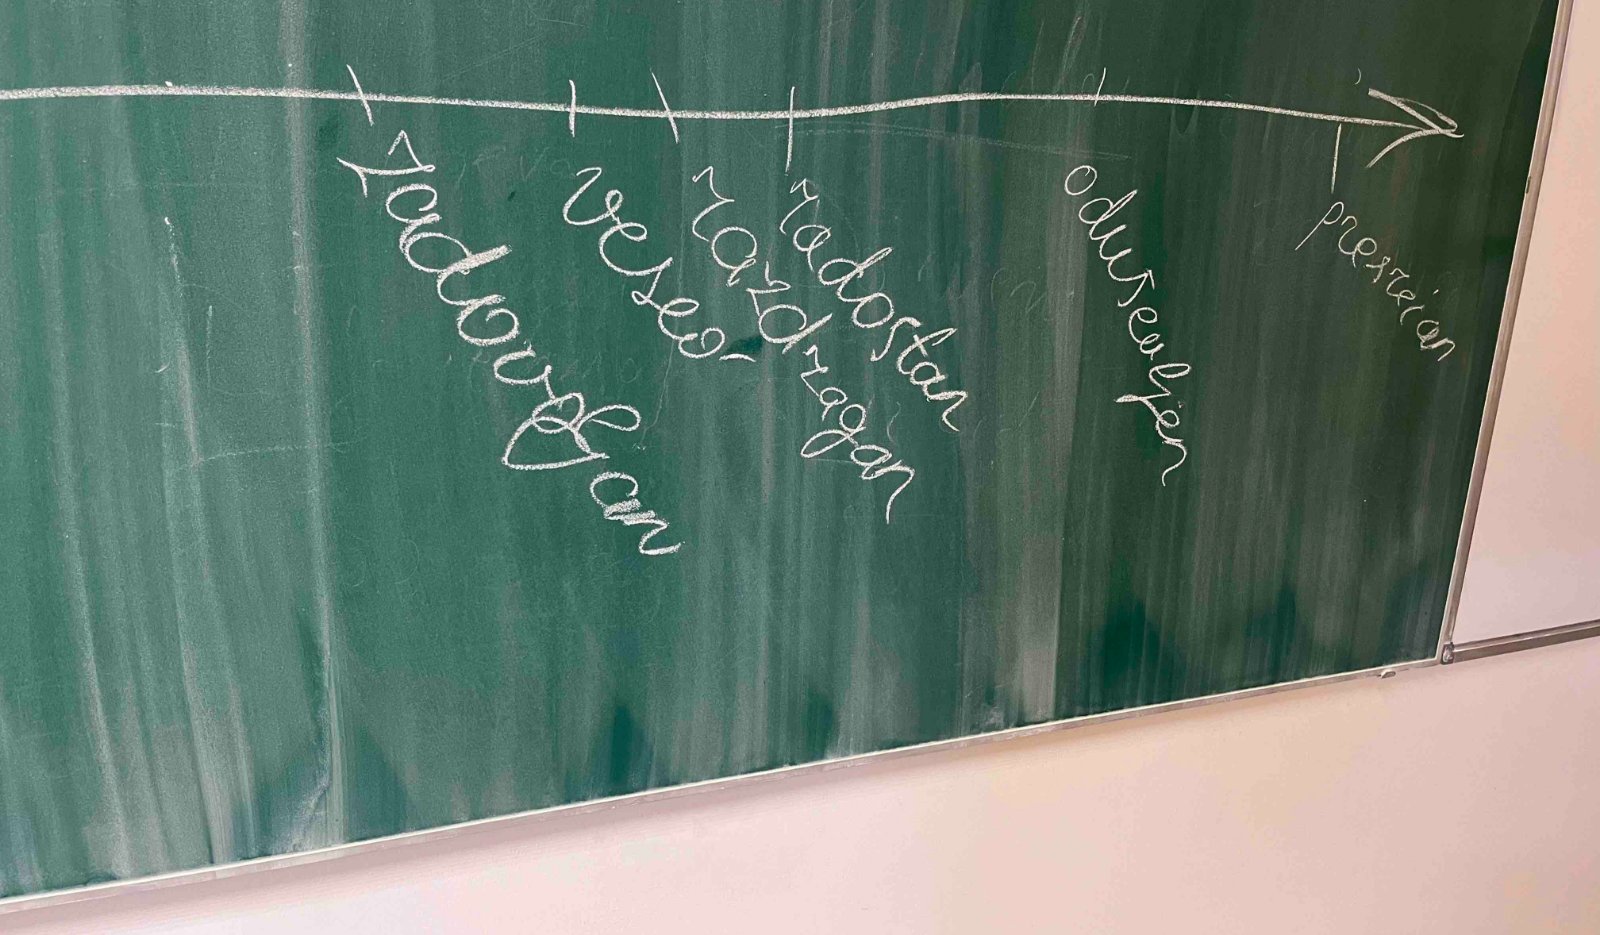 zadovoljan
veseo
razdragan
radostan
oduševljen
presrećan